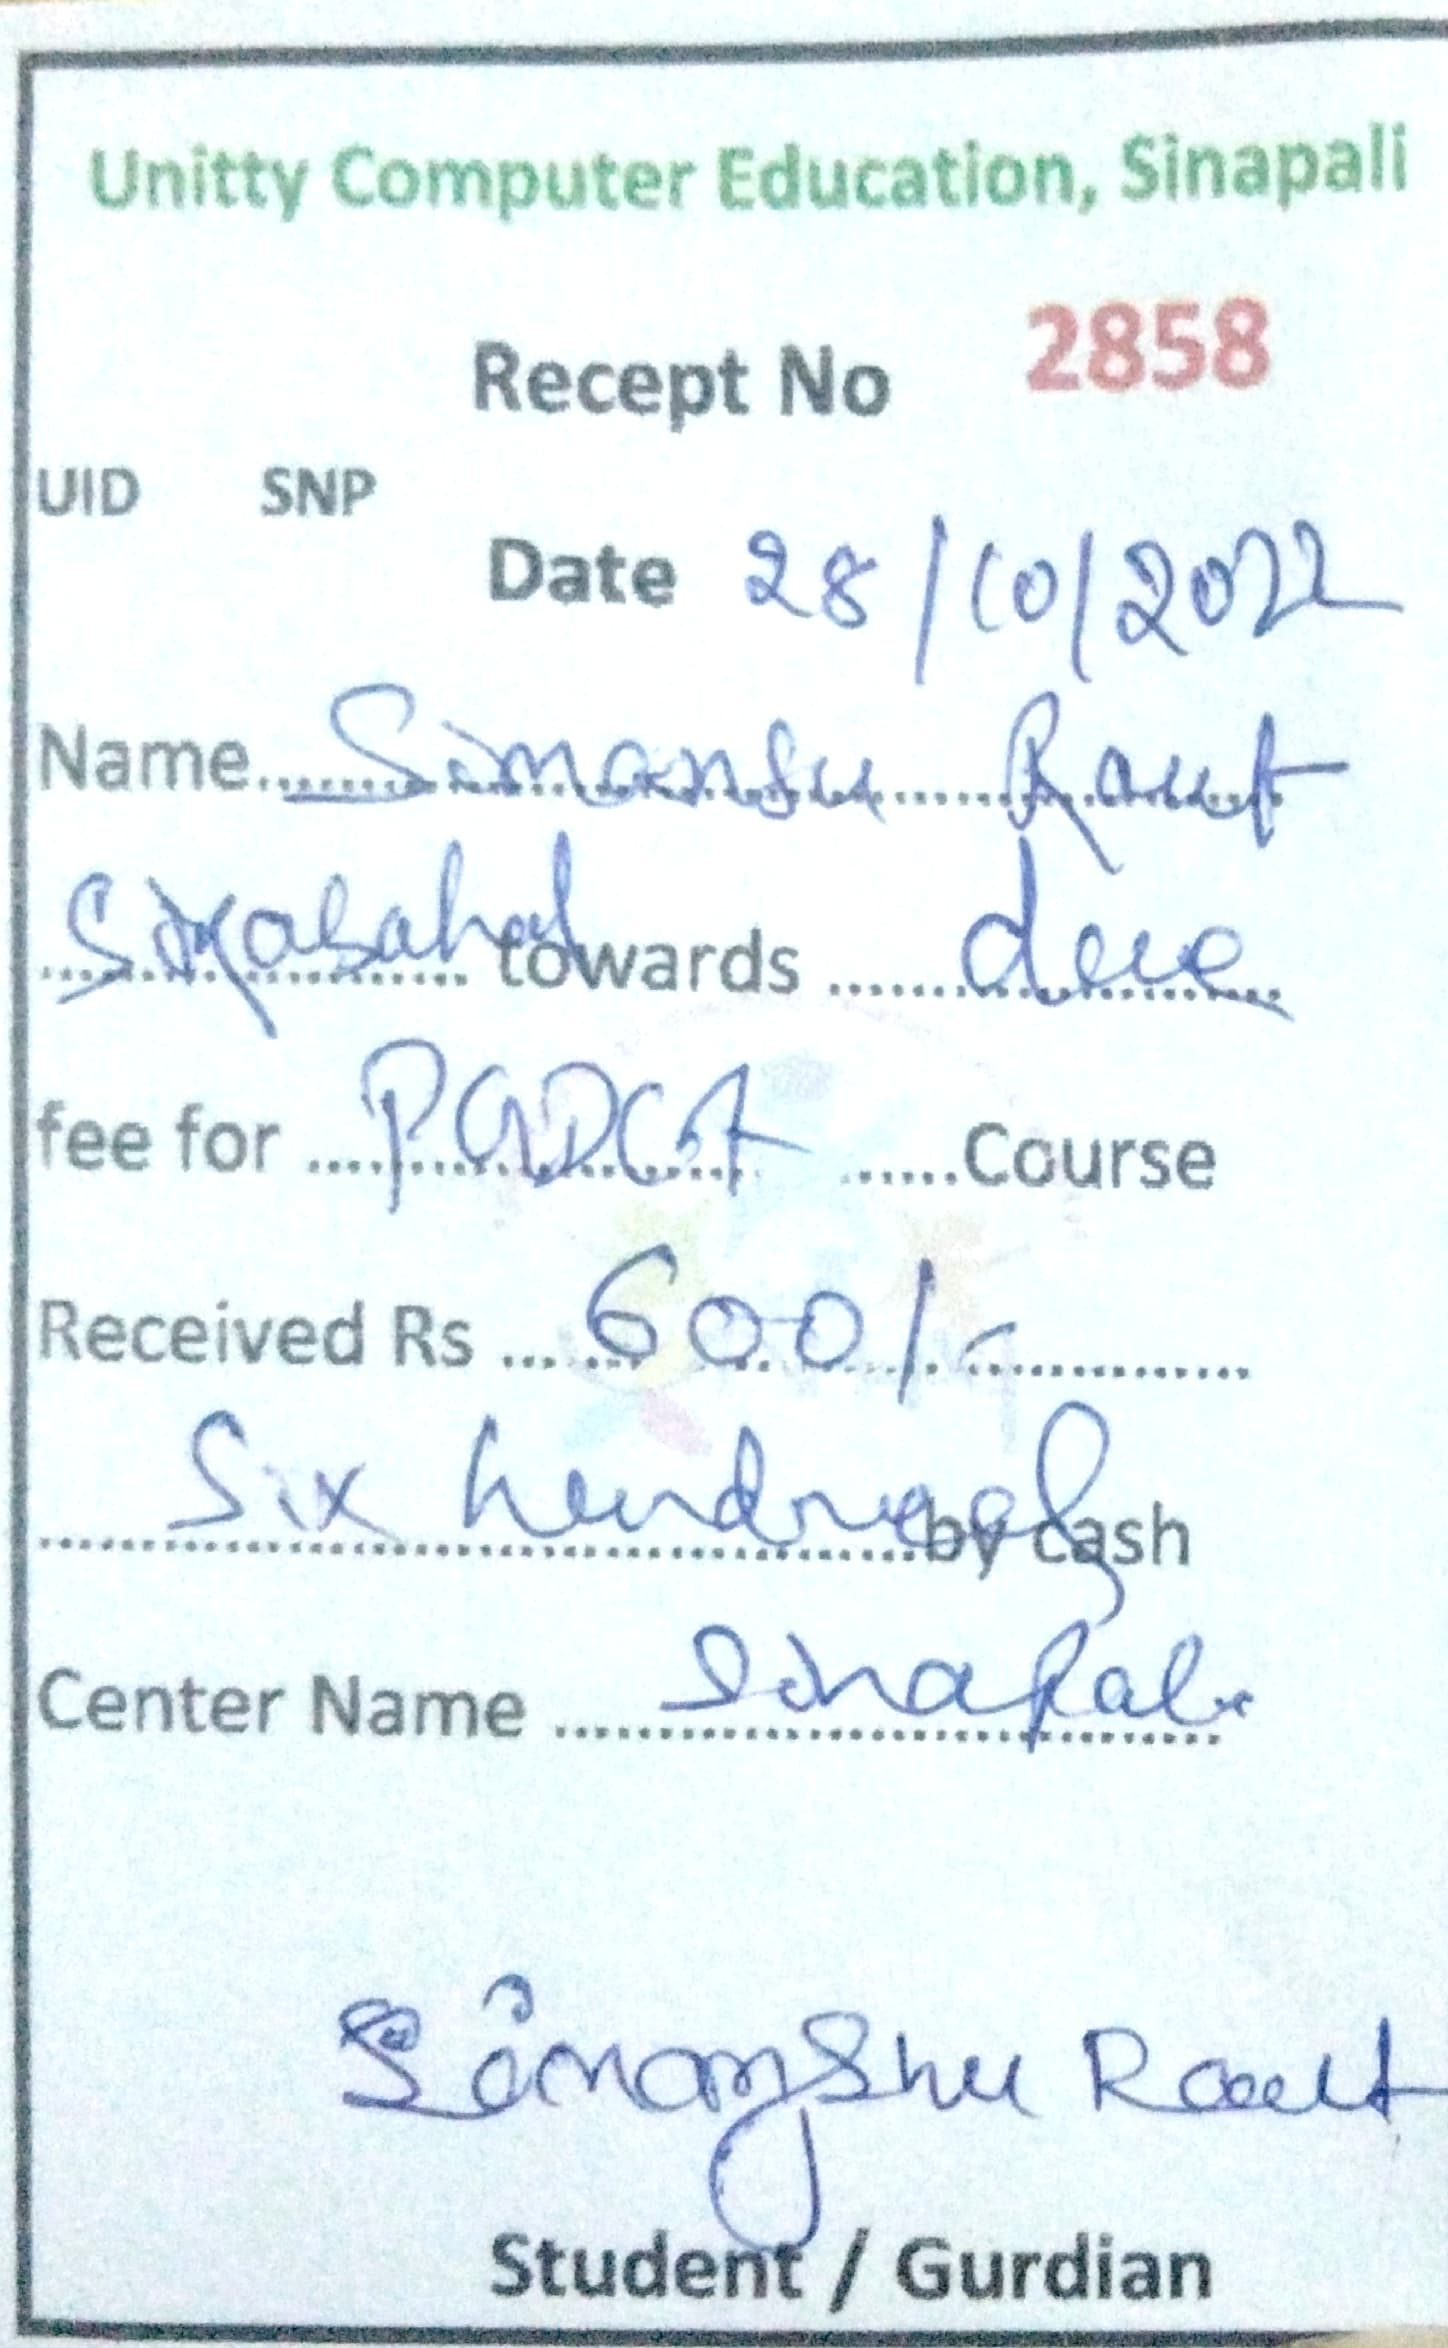 Unitty Computer Education, Sinapali
Recept No 2858
UID SNP
Date 28/10/2022
Name Simansu Raut
towards due
fee for PGDCA Course
Received Rs 600/-
Six hundred by cash
Center Name Sinapali
Simanshu Raut
Student / Gurdian